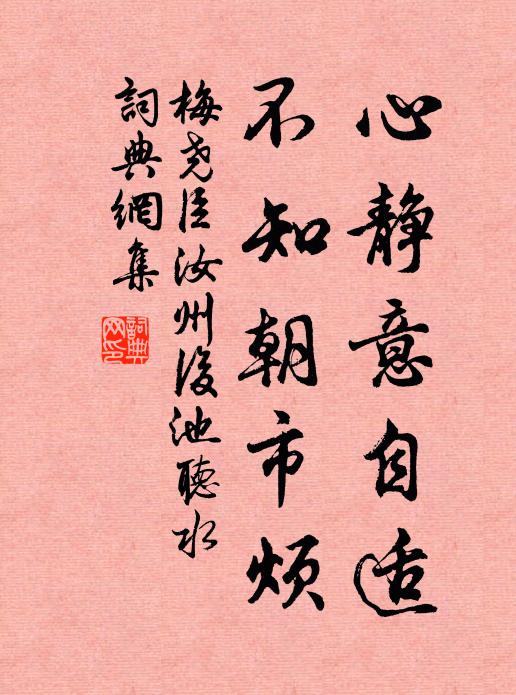 心静意自适
不知朝市烦
梅尧臣汝州後池聽水
詞典網集
詞典網印